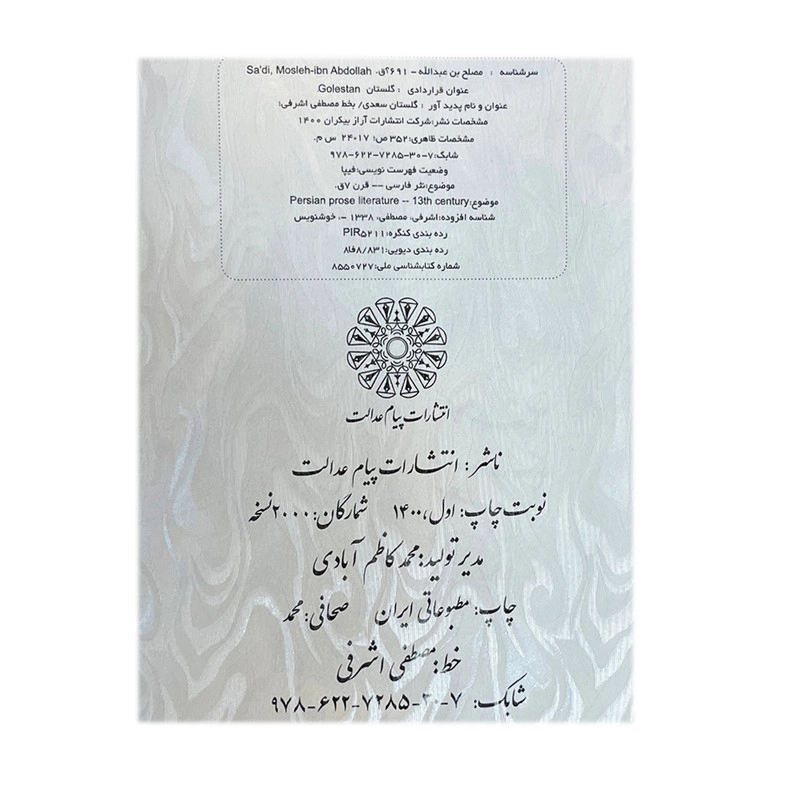 سرشناسه : مصلح بن عبدالله - ۶۹۱؟ق. Sa'di, Mosleh-ibn Abdollah
عنوان قراردادی : گلستان Golestan
عنوان و نام پدید آور : گلستان سعدی/ بخط مصطفی اشرفی؛
مشخصات نشر:شرکت انتشارات آراز بیکران ۱۴۰۰
مشخصات ظاهری:۳۵۲ ص؛ ۲۴٠۱۷ س م.
شابک:۷-۳۰-۷۲۸۵-۶۲۲-۹۷۸
وضعیت فهرست نویسی:فیپا
موضوع:نثر فارسی -- قرن ۷ق.
موضوع:Persian prose literature -- 13th century
شناسه افزوده:اشرفی، مصطفی، ۱۳۳۸ -، خوشنویس
رده بندی کنگره:PIR۵۲۱۱
رده بندی دیویی:۸فا۸/۸۳۱
شماره کتابشناسی ملی:۸۵۵۰۷۲۷
انتشارات پیام عدالت
ناشر: انتشارات پیام عدالت
نوبت چاپ: اول، ۱۴۰۰ شمارگان: ۲۰۰۰نسخه
مدیر تولید: محمد کاظم آبادی
چاپ: مطبوعاتی ایران صحافی: محمد
خط: مصطفی اشرفی
شابک: ۷-۳۰-۷۲۸۵-۶۲۲-۹۷۸